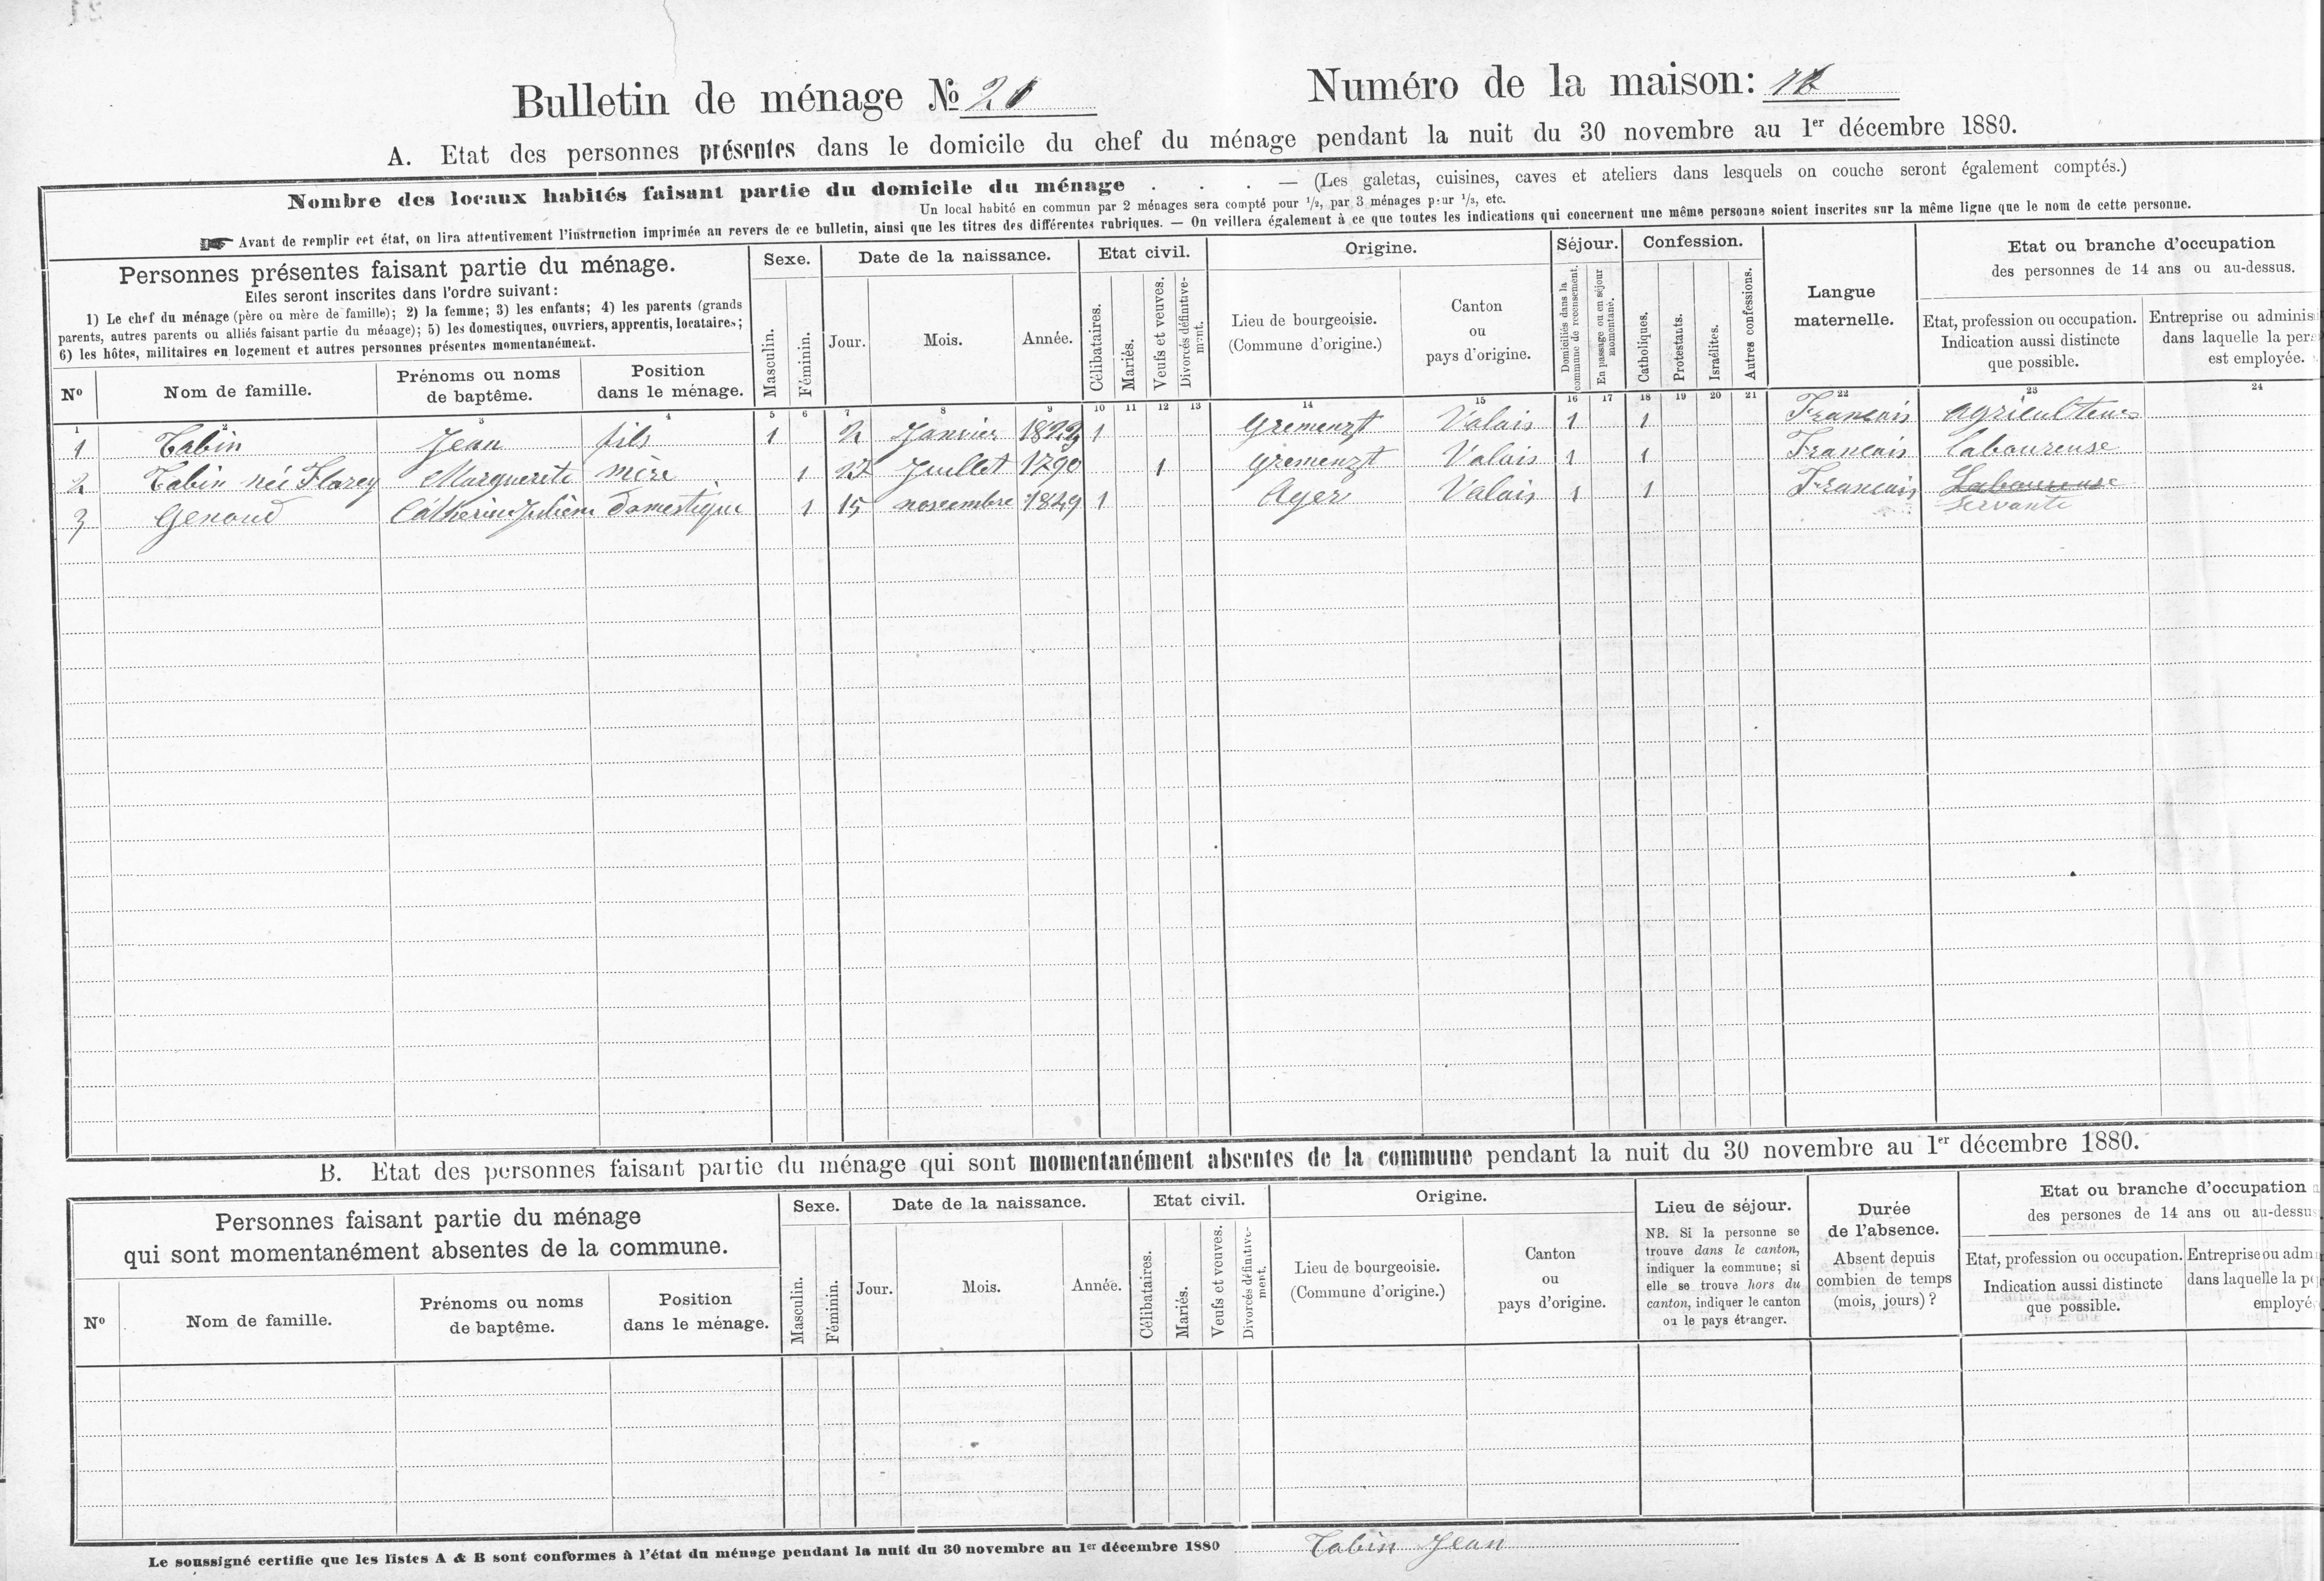 Bulletin de ménage № 21
Numéro de la maison:
A. Etat des personnes présentes dans le domicile du chef du ménage pendant la nuit du 30 novembre au 1er décembre 1880.
Nombre des locaux habités faisant partie du domicile du ménage . . . — (Les galetas, cuisines, caves et ateliers dans lesquels on couche seront également comptés.)
Un local habité en commun par 2 ménages sera compté pour 1/2, par 3 ménages pour 1/3, etc.
☛ Avant de remplir cet état, on lira attentivement l'instruction imprimée au revers de ce bulletin, ainsi que les titres des différentes rubriques. — On veillera également à ce que toutes les indications qui concernent une même personne soient inscrites sur la même ligne que le nom de cette personne.
Personnes présentes faisant partie du ménage.
Elles seront inscrites dans l'ordre suivant:
1) Le chef du ménage (père ou mère de famille); 2) la femme; 3) les enfants; 4) les parents (grands
parents, autres parents ou alliés faisant partie du ménage); 5) les domestiques, ouvriers, apprentis, locataires;
6) les hôtes, militaires en logement et autres personnes présentes momentanément.
Nº
Nom de famille.
Prénoms ou noms
de baptême.
Position
dans le ménage.
Sexe.
Masculin.
Féminin.
Date de la naissance.
Jour.
Mois.
Année.
Etat civil.
Célibataires.
Mariés.
Veufs et veuves.
Divorcés définitive-
ment.
Origine.
Lieu de bourgeoisie.
(Commune d'origine.)
Canton
ou
pays d'origine.
Séjour.
Domiciliés dans la
commune de recensement.
En passage ou en séjour
momentané.
Confession.
Catholiques.
Protestants.
Israélites.
Autres confessions.
Langue
maternelle.
Etat ou branche d'occupation
des personnes de 14 ans ou au-dessus.
Etat, profession ou occupation.
Indication aussi distincte
que possible.
Entreprise ou adminis
dans laquelle la pers
est employée.
1 2 3 4 5 6 7 8 9 10 11 12 13 14 15 16 17 18 19 20 21 22 23 24
1 Tabin Jean fils 1 2 Janvier 1 Gremenzt Valais 1 1 Francais agriculteur
2 Tabin née Florey Marguerite mère 1 Juillet 1790 1 Gremenzt Valais 1 1 Francais laboureuse
3 Genoud domestique 1 15 novembre 1849 1 Ayer Valais 1 1 Francais Laboureuse
Servante
B. Etat des personnes faisant partie du ménage qui sont momentanément absentes de la commune pendant la nuit du 30 novembre au 1er décembre 1880.
Personnes faisant partie du ménage
qui sont momentanément absentes de la commune.
Nº
Nom de famille.
Prénoms ou noms
de baptême.
Position
dans le ménage.
Sexe.
Masculin.
Féminin.
Date de la naissance.
Jour.
Mois.
Année.
Etat civil.
Célibataires.
Mariés.
Veufs et veuves.
Divorcés définitive-
ment.
Origine.
Lieu de bourgeoisie.
(Commune d'origine.)
Canton
ou
pays d'origine.
Lieu de séjour.
NB. Si la personne se
trouve dans le canton,
indiquer la commune; si
elle se trouve hors du
canton, indiquer le canton
ou le pays étranger.
Durée
de l'absence.
Absent depuis
combien de temps
(mois, jours)?
Etat ou branche d'occupation
des persones de 14 ans ou au-dessus
Etat, profession ou occupation.
Indication aussi distincte
que possible.
Entreprise ou adm
dans laquelle la pe
employé
Le soussigné certifie que les listes A & B sont conformes à l'état du ménage pendant la nuit du 30 novembre au 1er décembre 1880
Tabin Jean